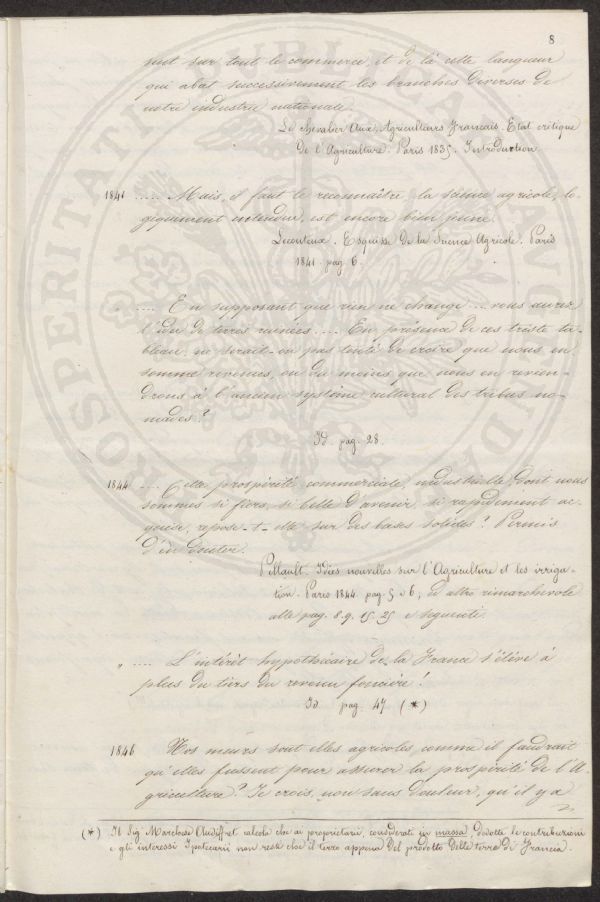 8
suit sur tout le commerce, et de là cette langueur
qui abat successivement les branches diverses de
notre industrie nationale.
Le chevalier Aux Agriculteurs Français. Etat critique
de l'Agriculture. Paris 1835. Introduction
1841 .... Mais, il faut le reconnaître, la science agricole, lo-
giquement entendue, est encore bien jeune.
Lecouteux. Esquisse de la Science Agricole. Paris
1841. pag. 6.
" .... En supposant que rien ne change ... vous aurez
l'idée de terres ruinées .... En présence de ces triste ta-
bleau, ne serait-on pas tenté de croire que nous en
somme revenus, ou du moins que nous en revien-
drons à l'ancien système cultural des tribus no-
mades?
Id. pag. 28.
1844 .... Cette prospérité commerciale, industrielle, dont nous
sommes si fiers, si belle d'avenir, si rapidement ac-
quise, repose-t-elle sur des bases solides? Permis
d'en douter.
Pellault. Idées nouvelles sur l'Agriculture et les irriga-
tion. Paris 1844 pag. 5 e 6, ed altro rimarchevole
alle pag. 8. 9. 15. 25 e seguenti.
" .... L'intérêt hypothécaire de la France s'élève à
plus du tiers du revenu foncière!
Id. pag. 47 (*)
1846 Nos meurs sont elles agricoles, comme il faudrait
qu'elles fussent pour assurer la prospérité de l'A-
griculture? Je crois, non sans douleur, qu'il y a
(*) Il Sig. Marchese Audiffret calcola che ai proprietarii, considerati in massa, dedotte le contribuzioni
e gli interessi Ipotecarii non resti che il terzo appena del prodotto delle terre di Francia.
PROSPERITATI PUBLICAE AUGENDAE